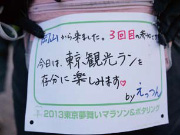 山から来ました。3回目の参加です
今日は、東京観光ランを
存分に楽しみます♡
by えっつん
2013東京夢舞いマラソン&ポタリング